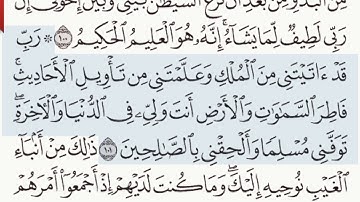 مِّنَ ٱلۡبَدۡوِ مِنۢ بَعۡدِ أَن نَّزَغَ ٱلشَّيۡطَٰنُ بَيۡنِي وَبَيۡنَ إِخۡوَتِيٓۚ إِنَّ
رَبِّي لَطِيفٞ لِّمَا يَشَآءُۚ إِنَّهُۥ هُوَ ٱلۡعَلِيمُ ٱلۡحَكِيمُ ١٠٠ ۞ رَبِّ
قَدۡ ءَاتَيۡتَنِي مِنَ ٱلۡمُلۡكِ وَعَلَّمۡتَنِي مِن تَأۡوِيلِ ٱلۡأَحَادِيثِۚ
فَاطِرَ ٱلسَّمَٰوَٰتِ وَٱلۡأَرۡضِ أَنتَ وَلِيِّۦ فِي ٱلدُّنۡيَا وَٱلۡأٓخِرَةِۖ
تَوَفَّنِي مُسۡلِمٗا وَأَلۡحِقۡنِي بِٱلصَّٰلِحِينَ ١٠١ ذَٰلِكَ مِنۡ أَنۢبَآءِ
ٱلۡغَيۡبِ نُوحِيهِ إِلَيۡكَۖ وَمَا كُنتَ لَدَيۡهِمۡ إِذۡ أَجۡمَعُوٓاْ أَمۡرَهُمۡ